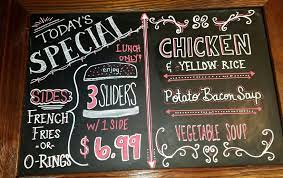 TODAY'S
SPECIAL
LUNCH
ONLY!
enjoy
SIDES:
FRENCH
FRIES
-OR-
O-RINGS
3 SLIDERS
W/ 1 SIDE
$6.99
CHICKEN
& YELLOW RICE
Potato Bacon Soup
VEGETABLE SOUP